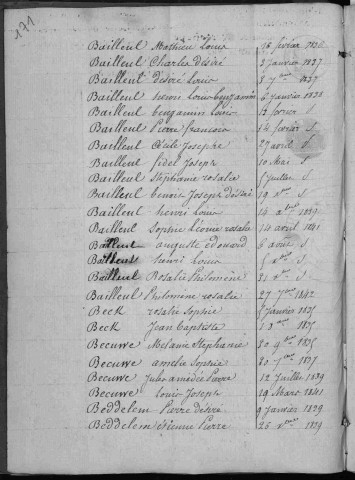 171
Bailleul Mathieu Louis 16 fevier 1836
Bailleul Charles désiré 3 Janvier 1837
Bailleul désiré Louis 3 7bre 1837
Bailleul henri Louis benjamin 6 Janvier 1838
Bailleul benjamin Louis 12 fevrier
Bailleul Pierre francois 14 fevrier
Bailleul Cécile Josephe 27 avril
Bailleul fidel Joseph 10 Mai
Bailleul Stéphanie rosalie Juillet
Bailleul benoit Joseph désiré 19
Bailleul henri Louis 14 1839
Bailleul Sophie Léonie rosalie 14 avril 1841
Bailleul auguste édouard 6 avril
Bailleul henri Louis
Bailleul Rosalie Philomène 31
Bailleul Philomene rosalie 27 7bre 1842
Beck rosalie Sophie Janvier 1835
Beck Jean baptiste 1835
Becuwe Melanie Stephanie 30 9bre 1835
Becuwe amelie Sophie 30 7bre 1837
Becuwe Jules amedée Pierre 12 Juillet 1839
Becuwe Louis Joseph 29 Mars 1841
Beddelem Pierre désiré 9 Janvier 1839
Beddelem étienne Pierre 26 1839